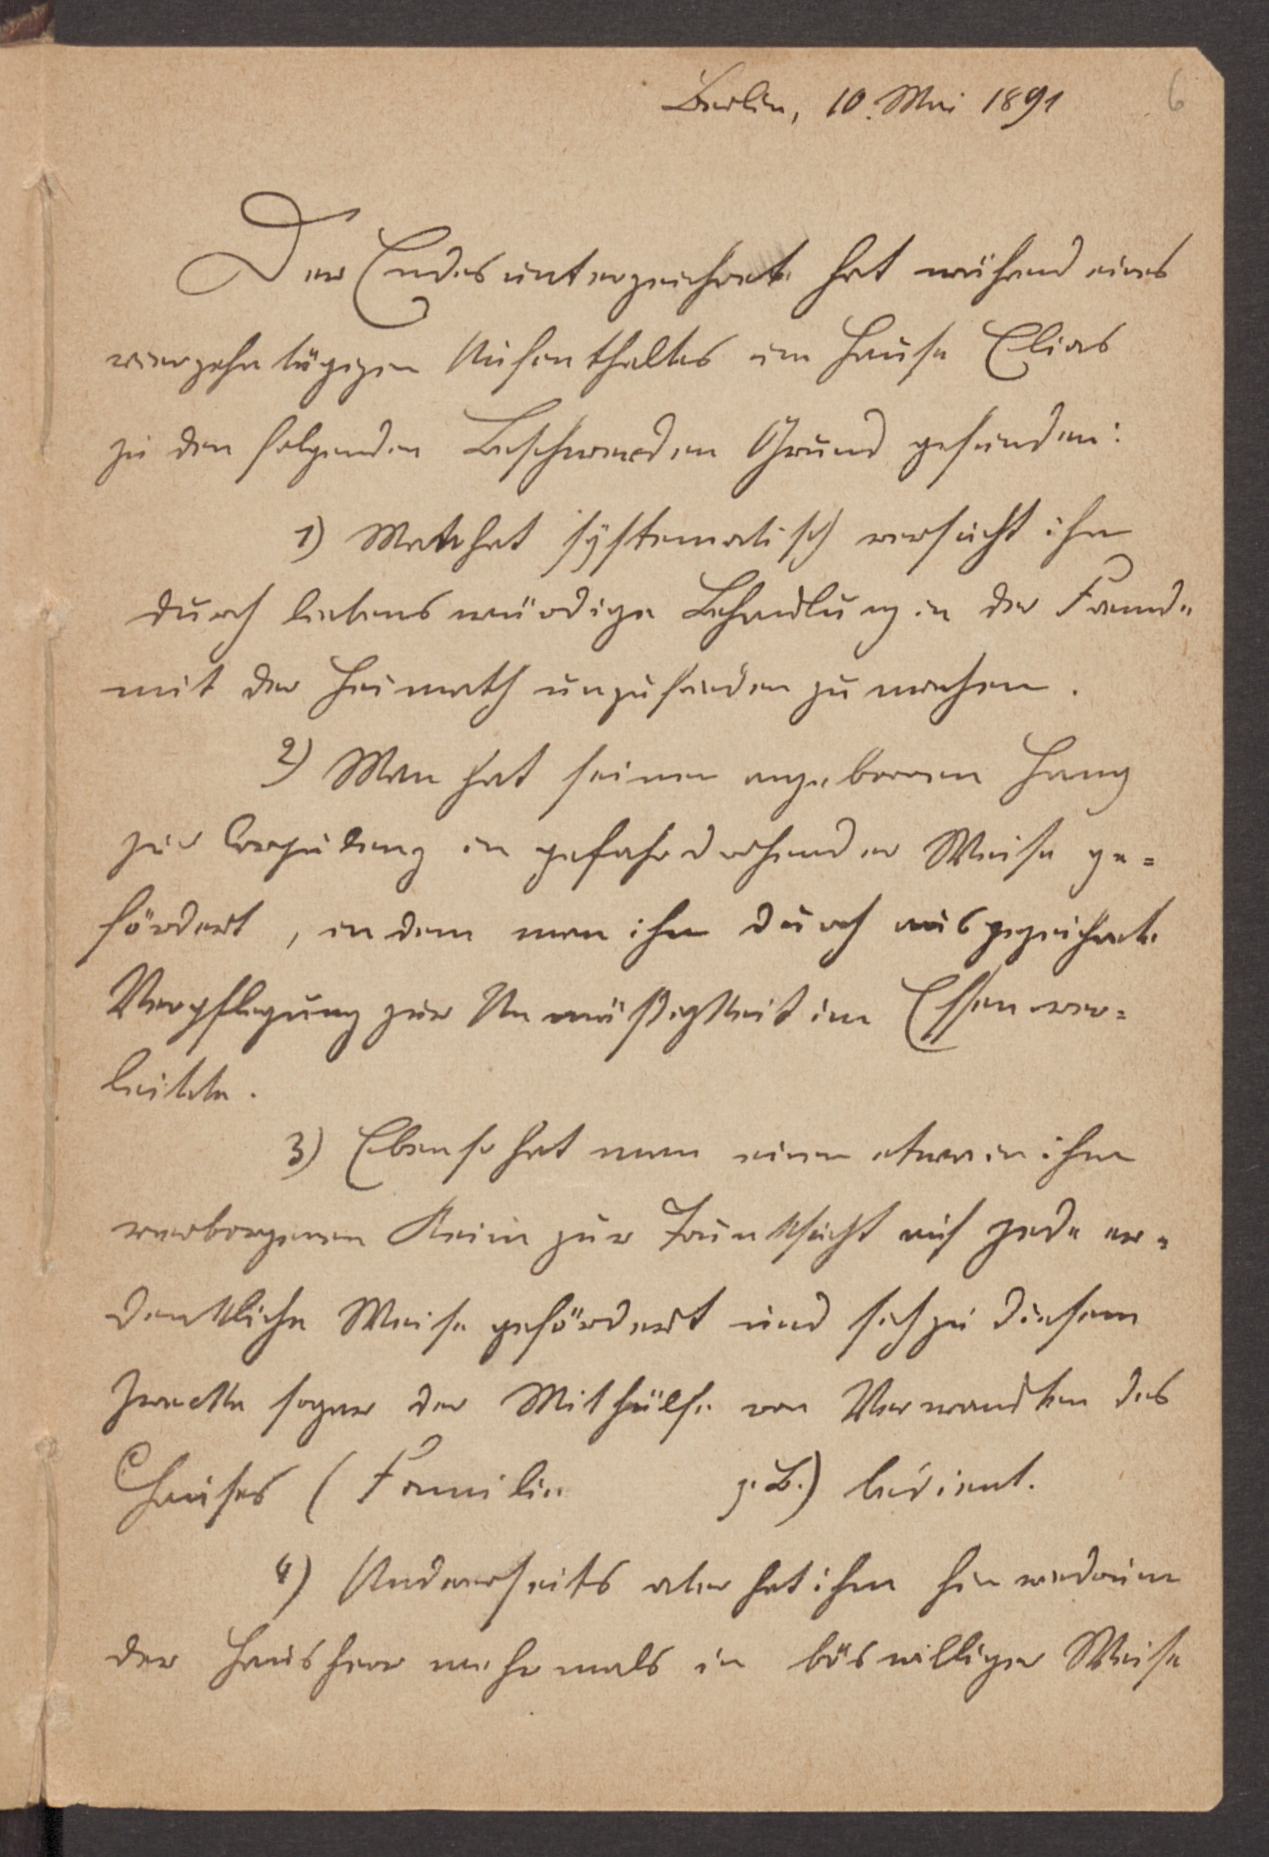 Berlin, 10. Mai 1891
6
Der Endesunterzeichnete hat während eines
vierzehntägigen Aufenthaltes im Hause Elias
zu den folgenden Beschwerden Grund gefunden:
1) Man hat systematisch versucht ihn
durch liebenswürdige Behandlung in der Fremde
mit der Heimath unzufrieden zu machen.
2) Man hat seinen angeborenen Hang
zur Corpulenz in gefahrdrohender Weise ge=
fördert, indem man ihn durch ausgezeichnete
Verpflegung zur Unmäßigkeit im Essen ver=
leitete.
3) Ebenso hat man einen etwa in ihm
verborgenen Keim zur Trunksucht auf jede er=
denkliche Weise gefördert und sich zu diesem
Zwecke sogar der Mithülfe von Verwandten des
Hauses (Familie z. B.) bedient.
4) Anderseits aber hat ihm hinwiederum
der Hausherr mehrmals in böswilliger Weise